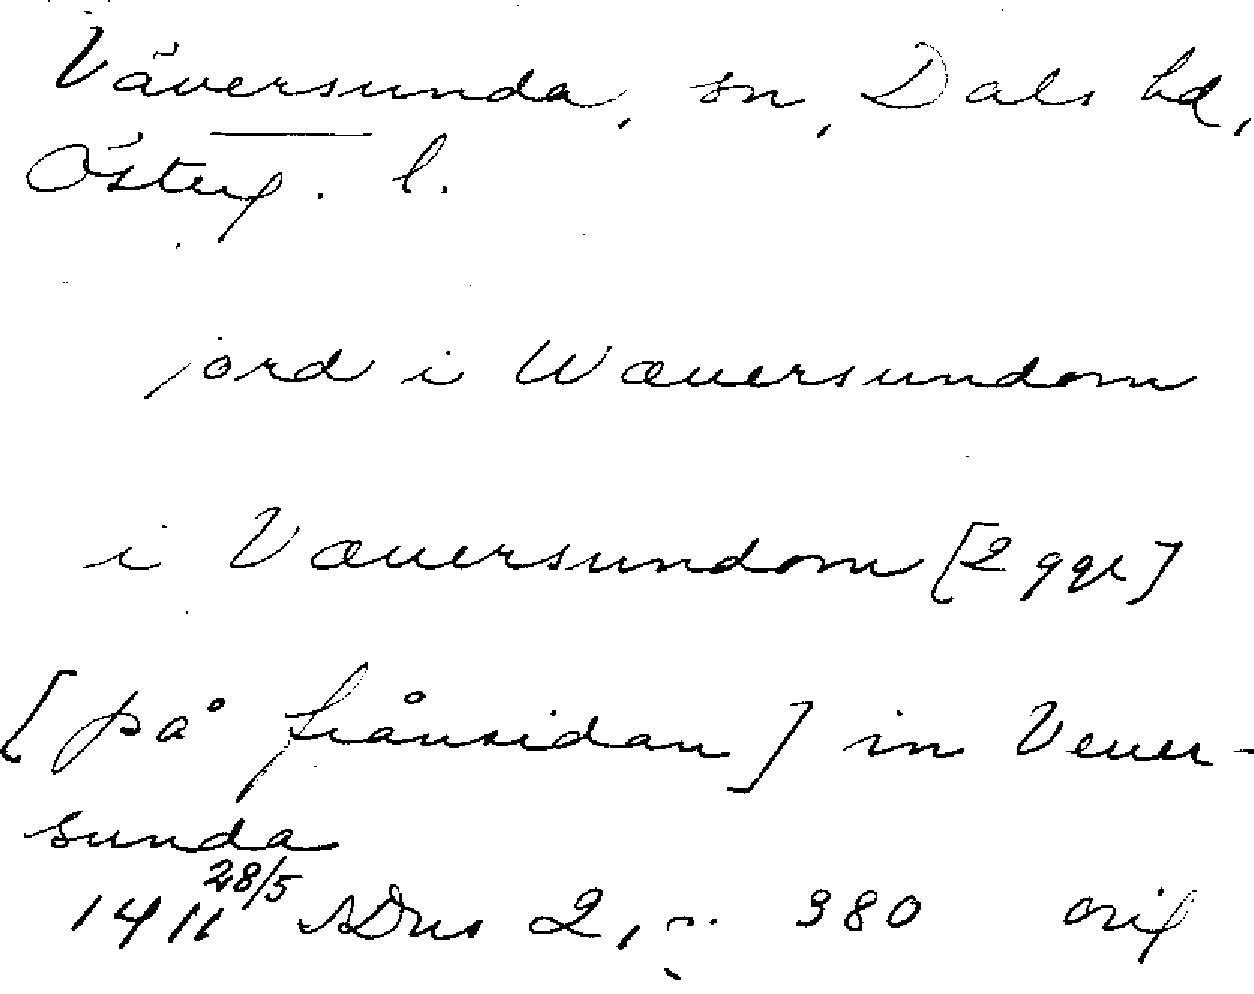 Väversunda, sn, Dals hd,
Österg. l.
jord i Wæuersundom
i Væuersundom [2 ggr]
[på frånsidan] in Veuer-
sunda
1411 28/5 SDns 2, s. 380 orig